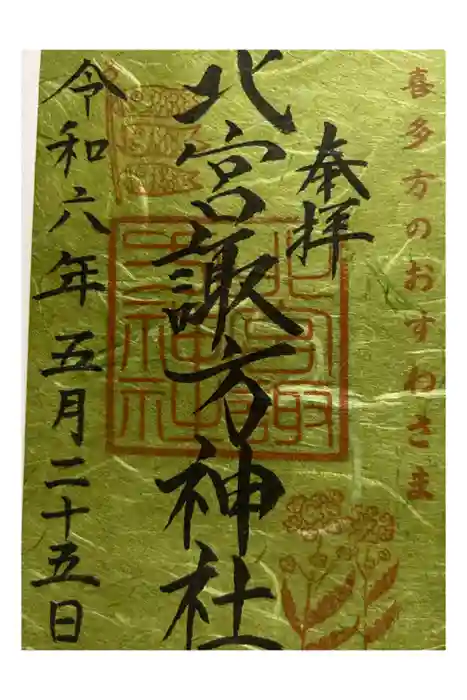 喜多方のおすわさま
奉拝
北宮諏方神社
令和六年五月二十五日
北宮諏
方神社